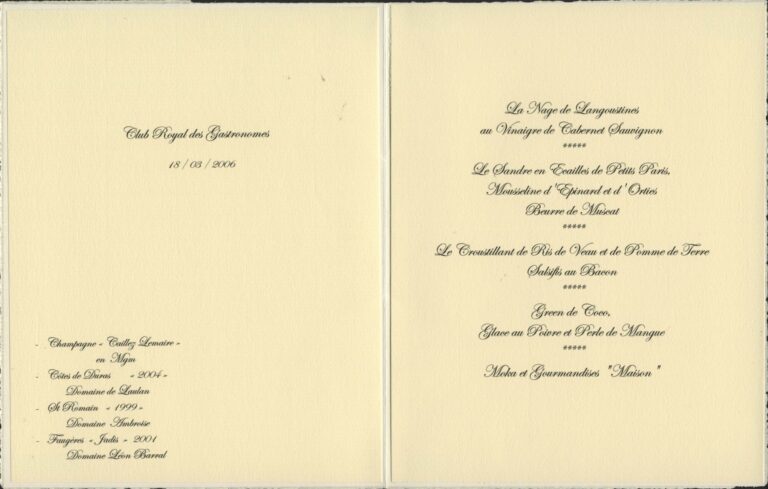 Club Royal des Gastronomes
18 / 03 / 2006
- Champagne « Caillez Lemaire »
en Mgm
- Côtes de Duras « 2004 »
Domaine de Laulan
- St Romain « 1999 »
Domaine Ambroise
- Faugères « Jadis » 2001
Domaine Léon Barral
La Nage de Langoustines
au Vinaigre de Cabernet Sauvignon
*****
Le Sandre en Ecailles de Petits Paris,
Mousseline d'Epinard et d'Orties
Beurre de Muscat
*****
Le Croustillant de Ris de Veau et de Pomme de Terre
Salsifis au Bacon
*****
Green de Coco,
Glace au Poivre et Perle de Mangue
*****
Moka et Gourmandises "Maison"